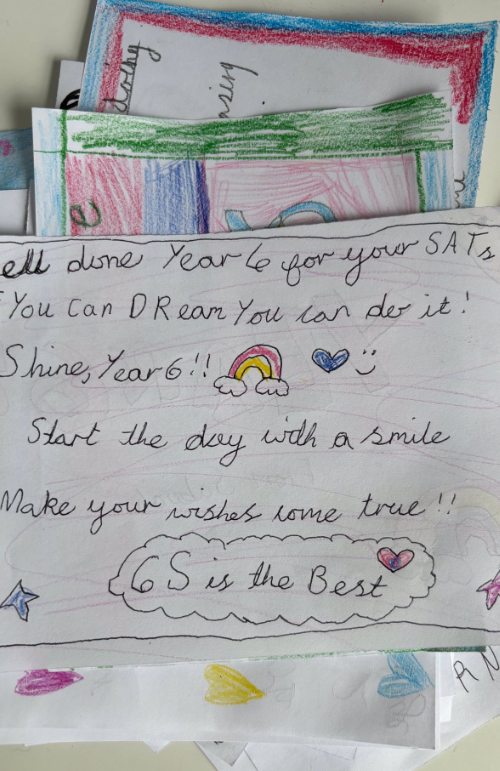 ell done Year 6 for your SATs
You can DReam You can do it!
Shine, Year 6!!
Start the day with a smile
Make your wishes come true!!
6S is the Best